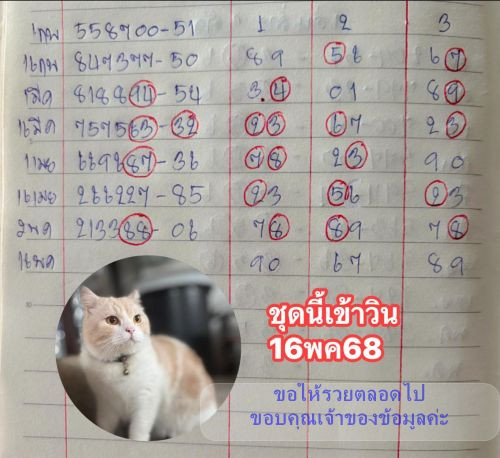 1กพ 558700-51 1 2 3
16กพ 847377-50 89 56 67
1มีค 818894-54 3.4 01 89
16มีค 757563-32 23 67 23
1เมย 669687-36 78 23 90
16เมย 266227-85 23 56 23
2พค 213388-06 78 89 78
16พค 90 67 89
ชุดนี้เข้าวิน
16พค68
ขอให้รวยตลอดไป
ขอบคุณเจ้าของข้อมูลค่ะ